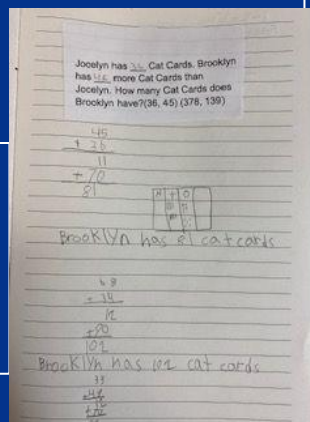 Jocelyn has 36 Cat Cards. Brooklyn
has 45 more Cat Cards than
Jocelyn. How many Cat Cards does
Brooklyn have?(36, 45) (378, 139)
45
+ 36
11
+ 70
81
H T O
Brooklyn has 81 cat cards
68
+ 34
12
+90
102
Brooklyn has 102 cat cards
33